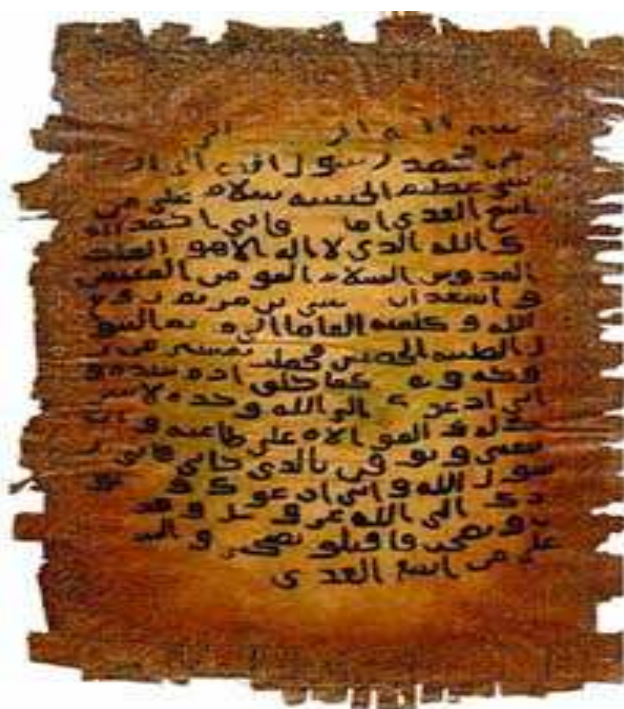 الله الر
من محمد رسول الله الى
شي عظيم الحبشه سلام على من
اتبع الهدى اما فاني احمد
الله الذي لا اله الا هو الملك
القدوس السلام المومن المهيمن
و اشهد ان عيسى بن مريم روح
الله و كلمته القاها الى مريم البتو
ل الطيبه الحصينه فحملت بعيسى من ر
وحه و كما خلق ادم بيده و
اني ادعو الى الله وحده لا شر
يك له و الموالاه على طاعته و ان
تتبعني و توقن بالذي جاني فاني ر
سول الله و اني ادعوك و جنو
دك الى الله عز و جل و قد
و نصحت فاقبلو نصيحتي و السلم
على من اتبع الهدى